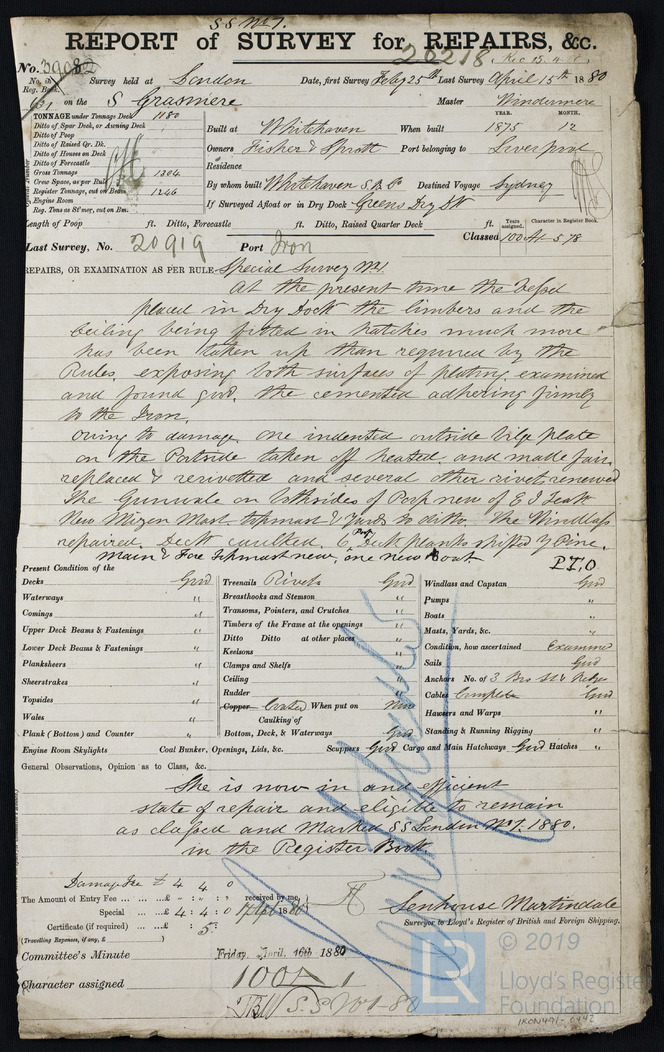 SS No 1.
REPORT of SURVEY for REPAIRS, &c.
No. 39082 20218 Rec 15.4.80
No. in Reg. Book. Survey held at London Date, first Survey Feby 25th Last Survey April 15th 1880
on the S Grasmere Master Windermere
TONNAGE under Tonnage Deck 1180
Ditto of Spar Deck, or Awning Deck
Ditto of Poop
Ditto of Raised Qr. Dk.
Ditto of Houses on Deck
Ditto of Forecastle
Gross Tonnage 1304
Crew Space, as per Rule
Register Tonnage, cut on Beam 1246
Engine Room
Reg. Tons as St'mer, cut on Bm.
YEAR. MONTH.
Built at Whitehaven When built 1875 12
Owners Fisher & Sprott Port belonging to Liverpool
Residence
By whom built Whitehaven S.B. Co Destined Voyage Sydney
If Surveyed Afloat or in Dry Dock Greens Dry Dk
Length of Poop ft. Ditto, Forecastle ft. Ditto, Raised Quarter Deck ft.
Years assigned. Character in Register Book.
Last Survey, No. 20919 Port Iron Classed 100 A1 5 78
REPAIRS, OR EXAMINATION AS PER RULE Special Survey No 1.
At the present time the Vessel
placed in Dry Dock the limbers and the
Ceiling being fitted in hatches much more
has been taken up than required by the
Rules, exposing both surfaces of plating examined
and found good, the cemented adhering firmly
to the Iron.
Owing to damage one indented outside bilge plate
on the Portside taken off heated and made fair
replaced & rerivetted and several other rivets renewed
The Gunwale on bothsides of Poop new of E I Teak
New Mizen Mast topmast & Yards to ditto. The Windlass
repaired. Deck caulked 6 Poop Deck planks shifted Y Pine.
Main & Fore Topmast new, one new Boat. P.T.O
Present Condition of the
Decks Good
Waterways "
Comings "
Upper Deck Beams & Fastenings "
Lower Deck Beams & Fastenings "
Planksheers "
Sheerstrakes "
Topsides "
Wales "
Plank (Bottom) and Counter "
Treenails Rivets Good
Breasthooks and Stemson "
Transoms, Pointers, and Crutches "
Timbers of the Frame at the openings "
Ditto Ditto at other places "
Keelsons "
Clamps and Shelfs "
Ceiling "
Rudder "
Copper Coated When put on Now
Caulking of
Bottom, Deck, & Waterways Good
Windlass and Capstan Good
Pumps "
Boats "
Masts, Yards, &c. "
Condition, how ascertained Examined
Sails Good
Anchors No. of 3 Brs St & Kedge
Cables Complete Good
Hawsers and Warps "
Standing & Running Rigging "
Engine Room Skylights Coal Bunker, Openings, Lids, &c. Scuppers Good Cargo and Main Hatchways Good Hatches "
General Observations, Opinion as to Class, &c.
She is now in and efficient
state of repair and eligible to remain
as classed and Marked SS London No 1. 1880.
in the Register Book.
Damage Fee £ 4 4 0
The Amount of Entry Fee £ " : " : " received by me,
Special £ 4 : 4 : 0 1880
Certificate (if required) : 5 :
(Travelling Expenses, if any, £ )
Senhouse Martindale
Surveyor to Lloyd's Register of British and Foreign Shipping.
Committee's Minute Friday, April 16th 1880
Character assigned 100A1
S.S No 1-80
© 2019
LR Lloyd's Register Foundation
IRON491-0442